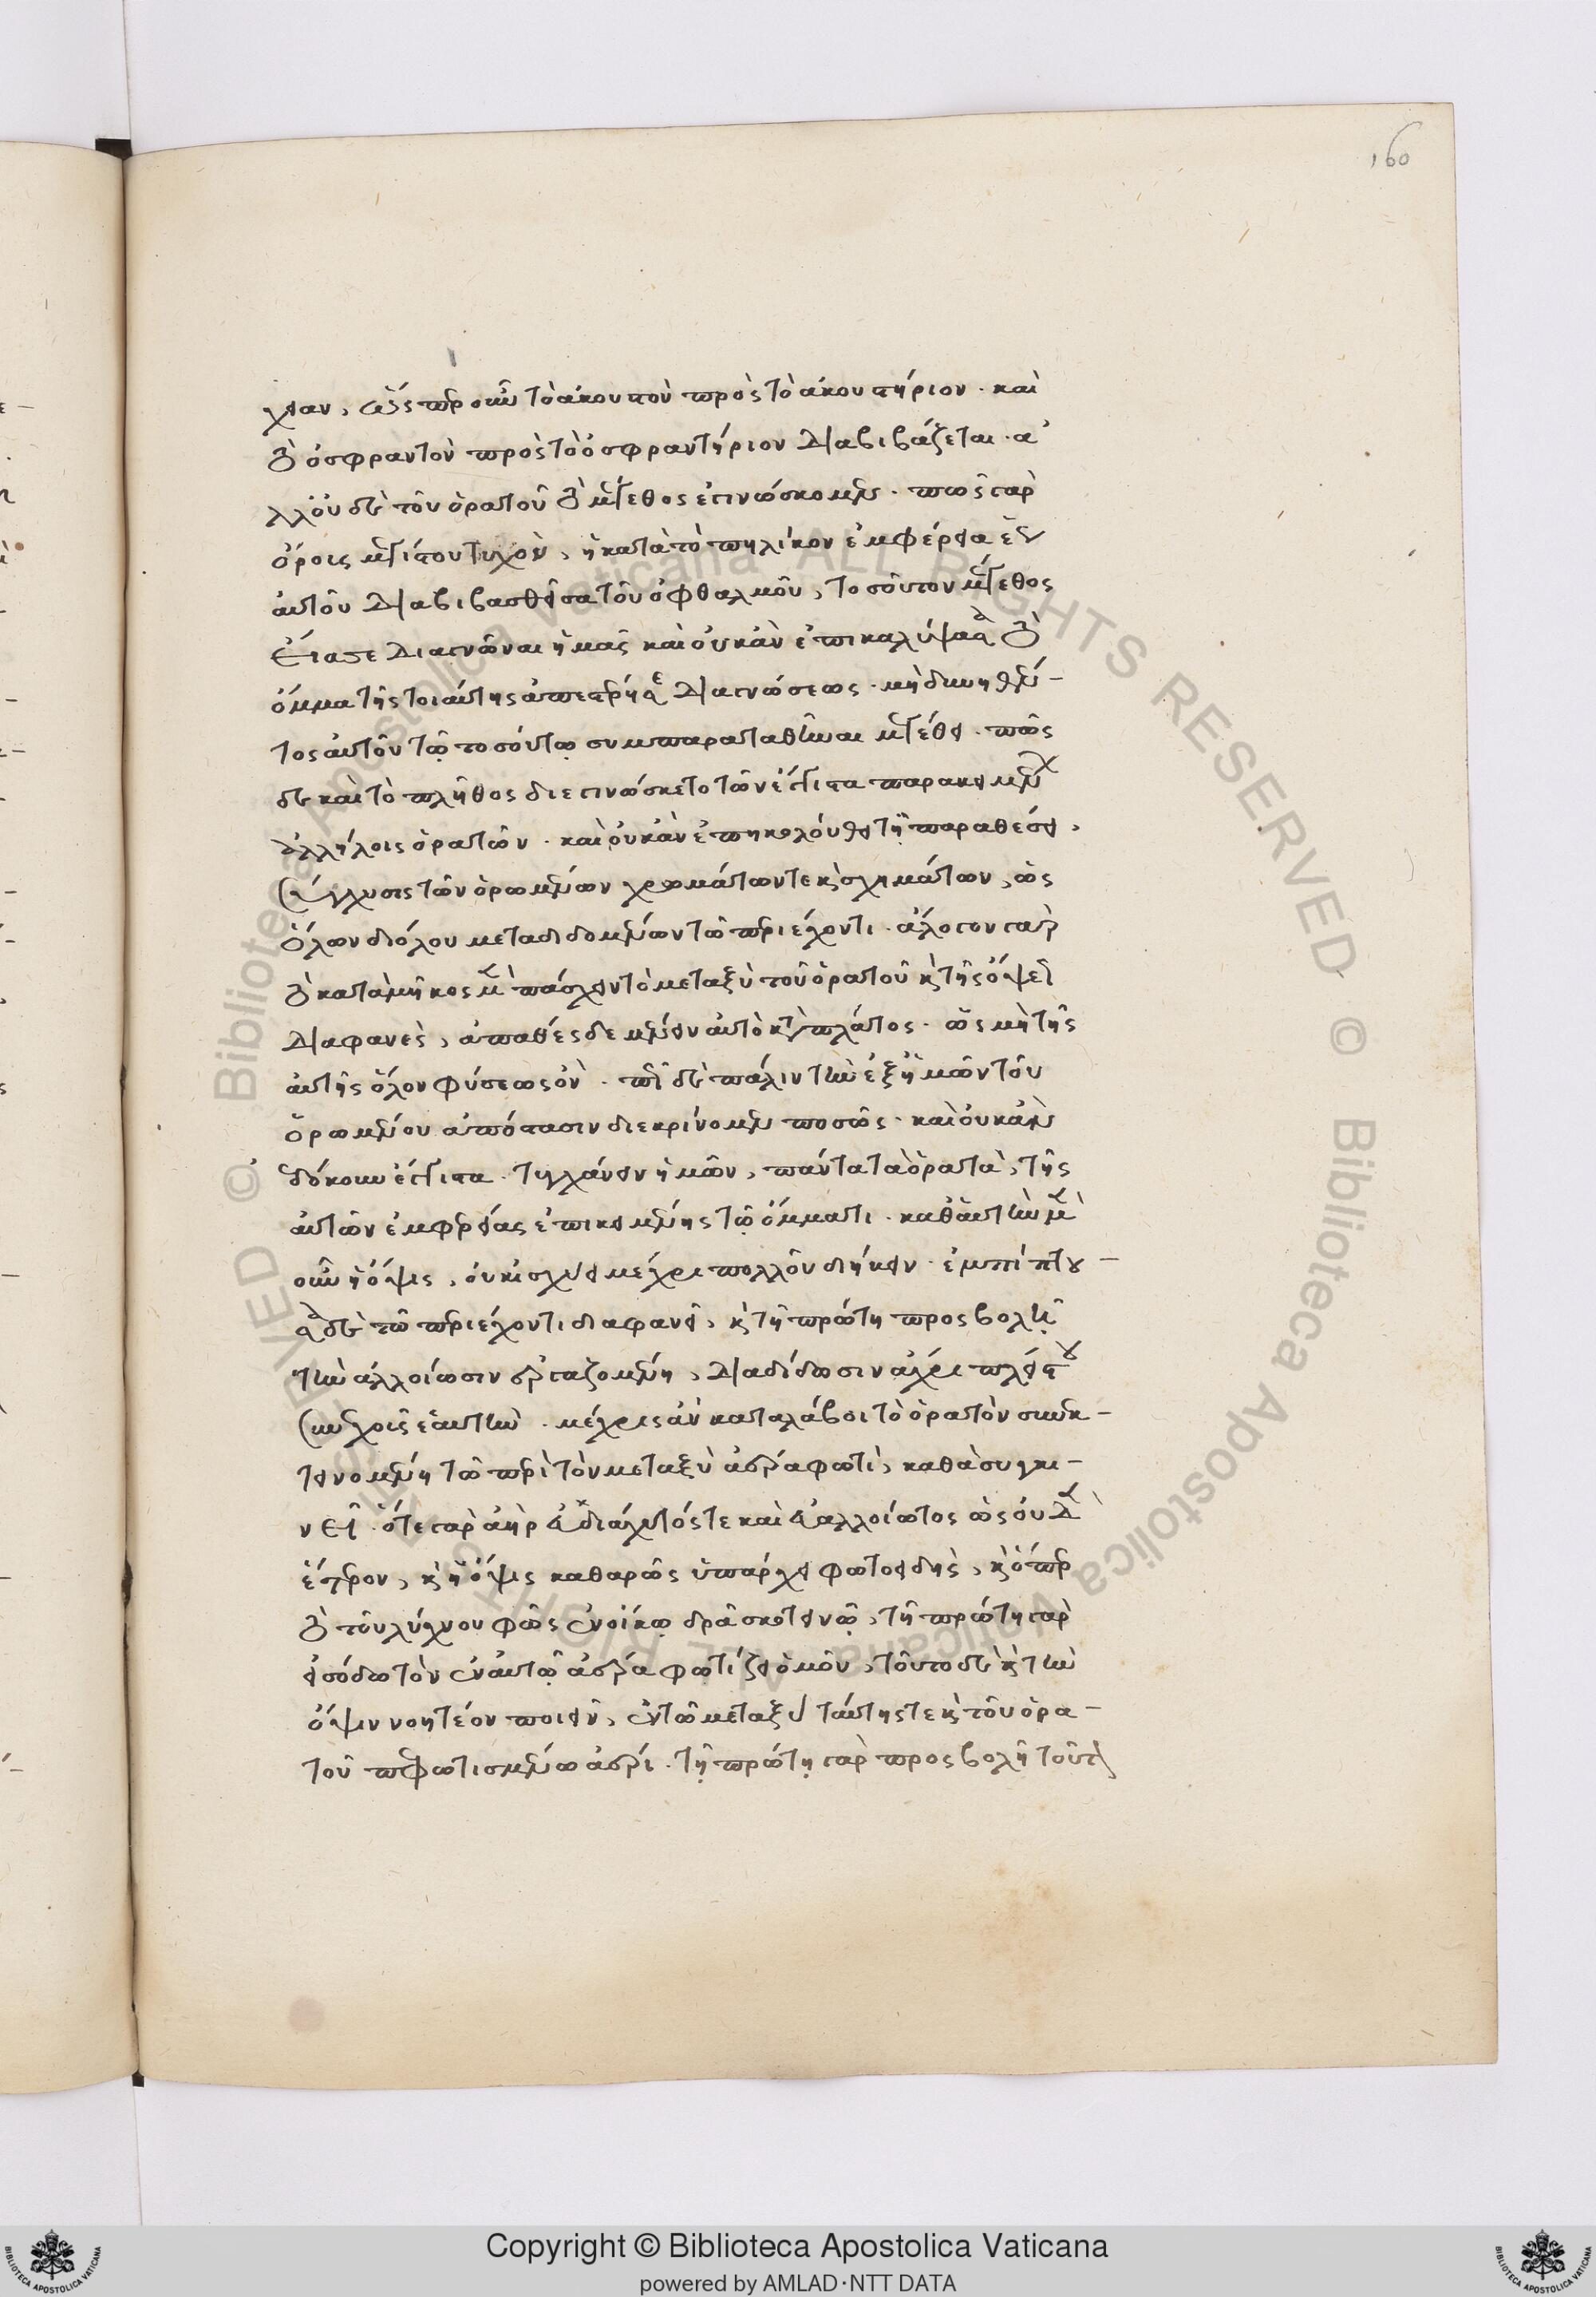 160
χειαν, ὥσπερ οὖν τὸ ἀκουστὸν πρὸς τὸ ἀκουστήριον. καὶ
τὸ ὀσφραντὸν πρὸς τὸ ὀσφραντήριον διαβιβάζεται. ἀ
λλ' οὐδὲ τοῦ ὁρατοῦ τὸ μέγεθος ἐγινώσκομεν. πῶς γὰρ
ὄρους μεγίστου τυχὸν, ἡ κατὰ τὸ πηλίκον ἐμφέρεια
αὐτοῦ διαβιβασθεῖσα τοῦ ὀφθαλμοῦ, τοσοῦτον μέγεθος
διαγνῶναι ἡμᾶς καὶ οὐκ ἂν ἐπικαλύψασα τὸ
ὄμμα τῆς τοιαύτης ἀπεστέρησε διαγνώσεως. μὴ δυνηθέν-
τος αὐτοῦ τῷ τοσούτῳ συμπαραταθῆναι μεγέθει. πῶς
δὲ καὶ τὸ πλῆθος διεγινώσκετο τῶν ἔγγιστα παρακειμένων
ἀλλήλοις ὁρατῶν. καὶ οὐκ ἂν ἐπηκολούθει τῇ παραθέσει,
σύγχυσις τῶν ὁρωμένων χρωμάτων τε καὶ σχημάτων, ὡς
ὅλων δι' ὅλου μεταδιδομένων τῷ περιέχοντι. ἄλογον γὰρ
τὸ κατὰ μῆκος μὲν πάσχειν τὸ μεταξὺ τοῦ ὁρατοῦ καὶ τῆς ὄψεως
διαφανὲς, ἀπαθὲς δὲ μένειν αὐτὸ κατὰ πλάτος. ὡς μὴ τῆς
αὐτῆς ὅλον φύσεως ὄν. πῶς δὲ πάλιν τὴν ἐξ ἡμῶν τοῦ
ὁρωμένου ἀπόστασιν διεκρίνομεν ποσῶς. καὶ οὐκ ἂν
ἐδόκουν ἔγγιστα τυγχάνειν ἡμῶν, πάντα τὰ ὁρατὰ, τῆς
αὐτῶν ἐμφερείας ἐπικειμένης τῷ ὄμματι. καθ' αὑτὴν μὲν
οὖν ἡ ὄψις, οὐκ ἰσχύει μέχρι πολλοῦ διήκειν. ἐμπίπτου-
σα δὲ τῷ περιέχοντι διαφανεῖ, καὶ τῇ πρώτῃ προσβολῇ
τὴν ἀλλοίωσιν ἐργαζομένη, διαδίδωσιν ἄχρι πλείστου
συνεχοῦς ἑαυτὴν. μέχρις ἂν καταλάβοι τὸ ὁρατὸν συνεκ-
τεινομένη τῷ περὶ τὸν μεταξὺ ἀέρα φωτὶ, καθὰ συγγε-
νεῖ. ὅτε γὰρ ἀὴρ εὐδιάχυτός τε καὶ εὐαλλοίωτος ὡς οὐδὲν
ἕτερον, καὶ ἡ ὄψις καθαρῶς ὑπάρχει φωτοειδὴς, καὶ ὅπερ
τὸ τοῦ λύχνου φῶς ἐν οἴκῳ δρᾷ σκοτεινῷ, τῇ πρώτῃ γὰρ
εἰσόδῳ τὸν ἐν αὐτῷ ἀέρα φωτίζει ὁμοῦ, τοῦτο δὲ καὶ τὴν
ὄψιν νοητέον ποιεῖν, ἐν τῷ μεταξὺ ταύτης τε καὶ τοῦ ὁρα-
τοῦ πεφωτισμένῳ ἀέρι. τῇ πρώτῃ γὰρ προσβολῇ τοῦτον
Copyright © Biblioteca Apostolica Vaticana
powered by AMLAD·NTT DATA